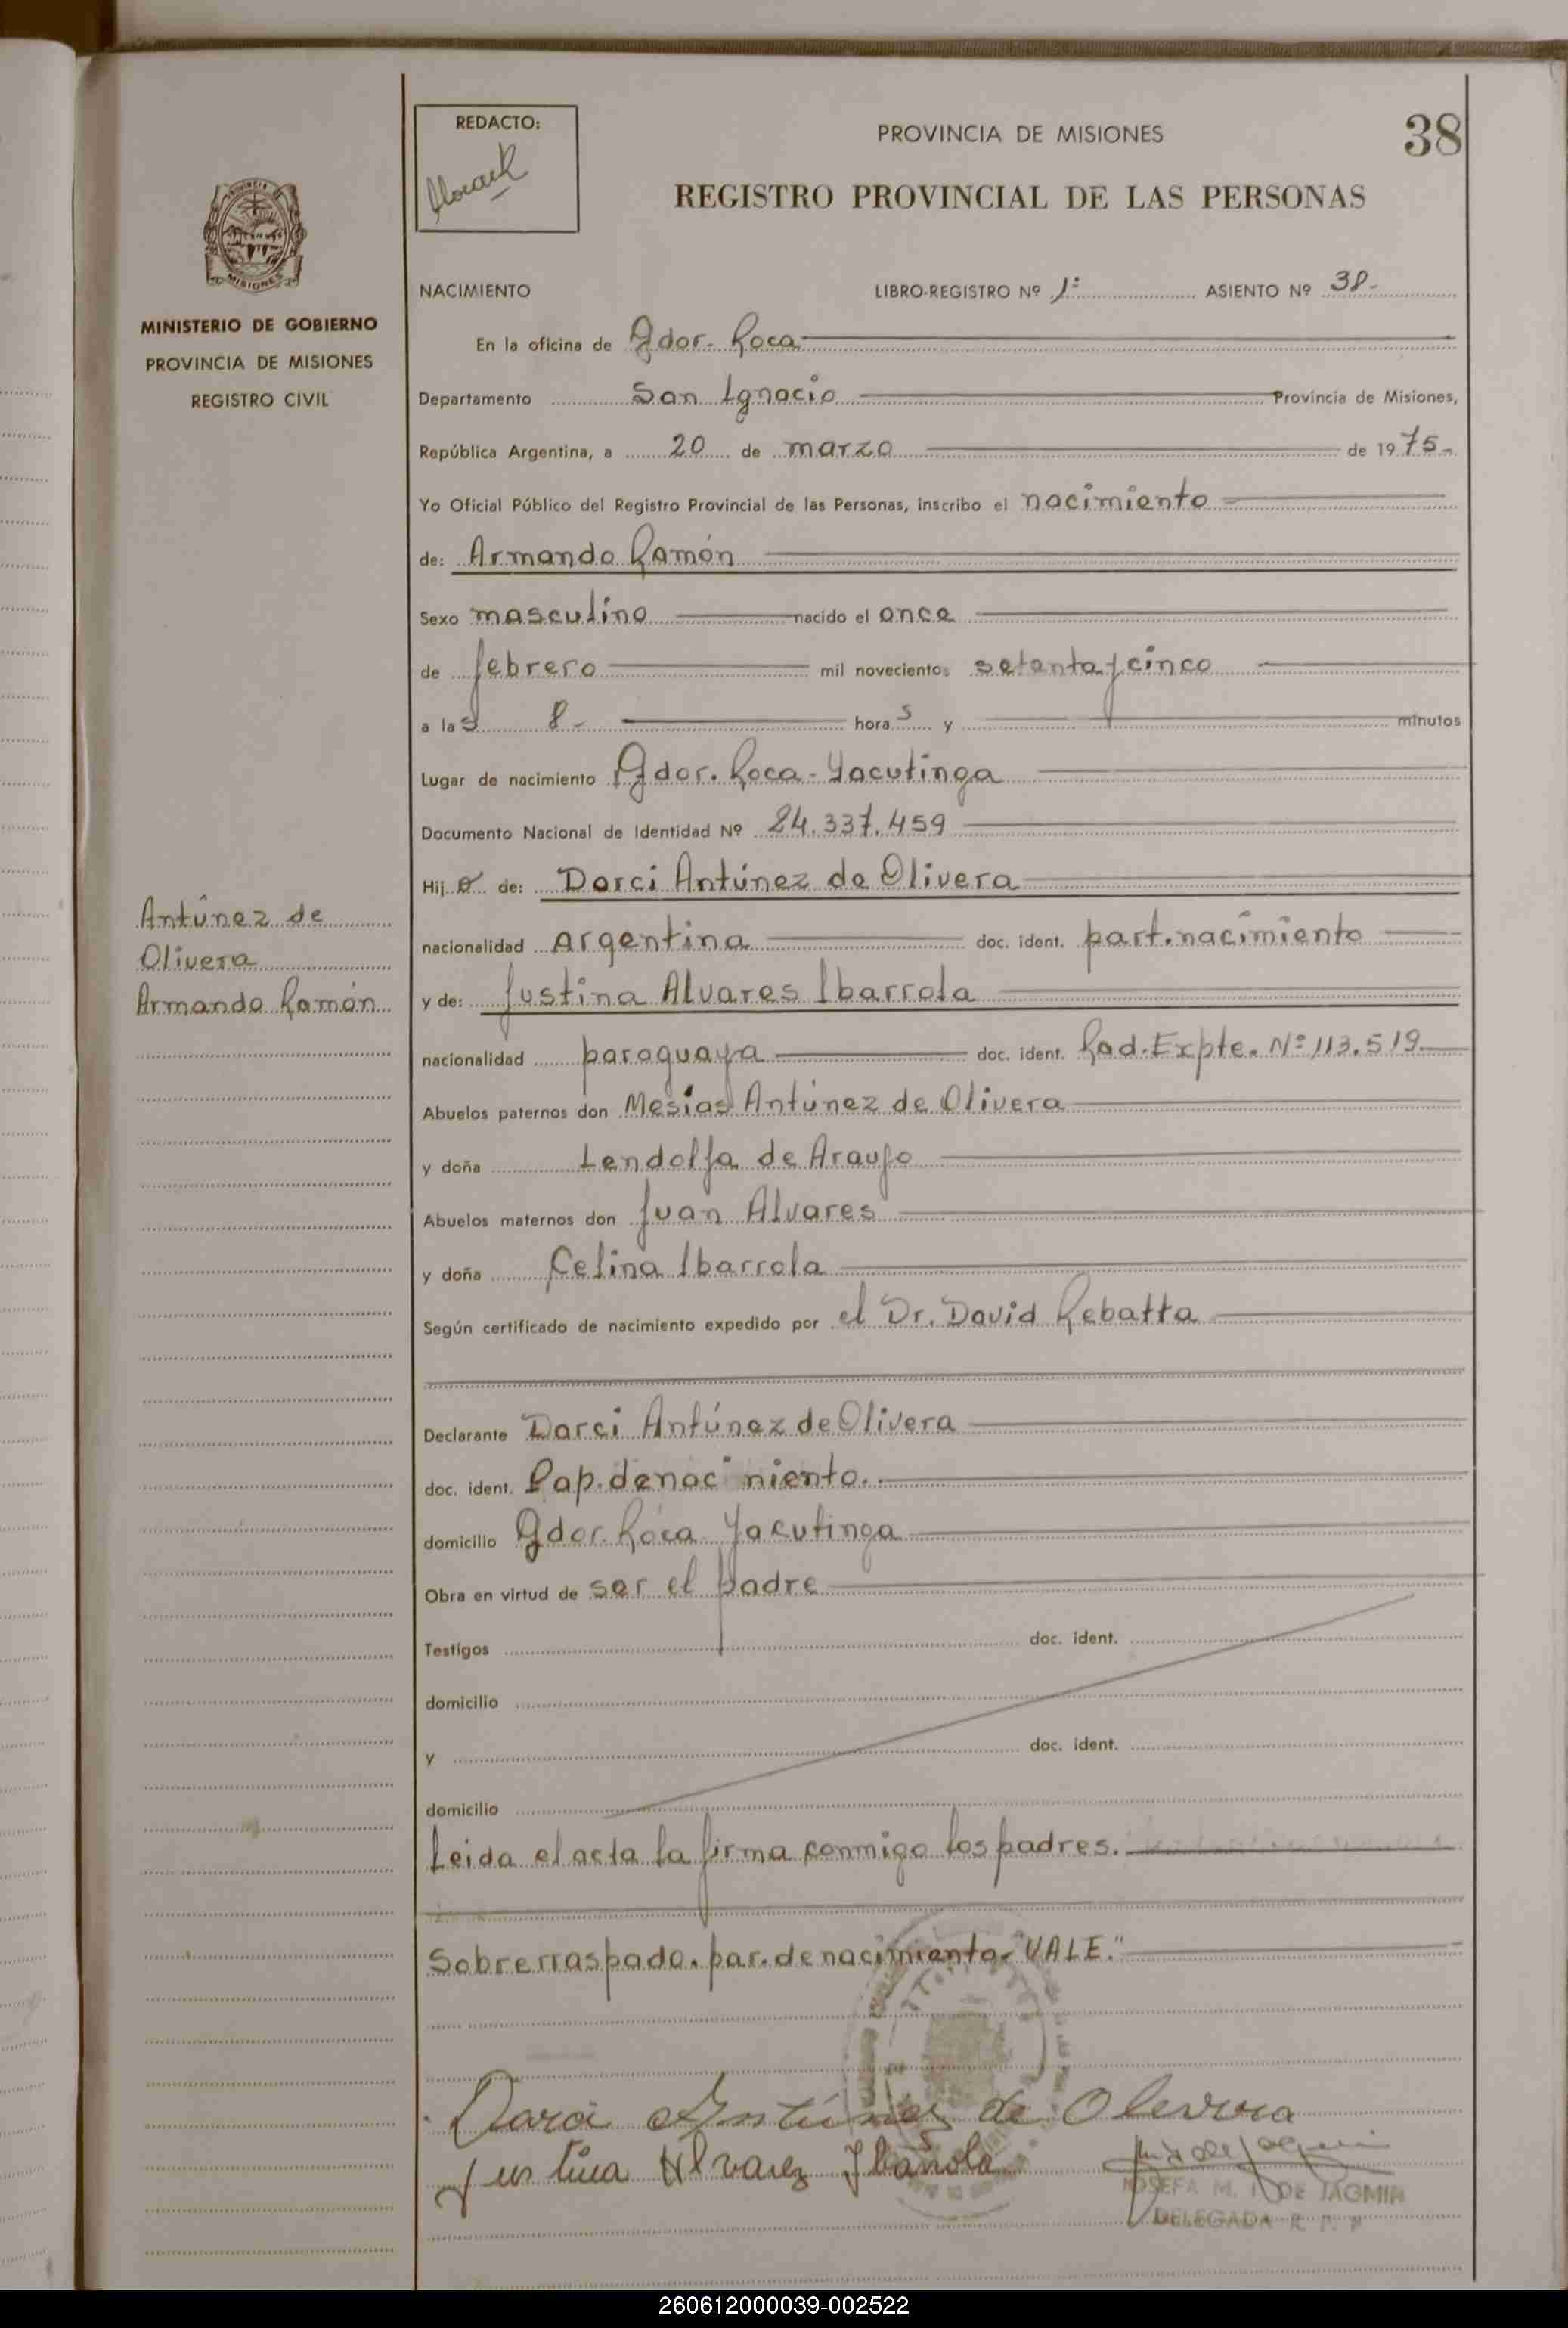 REDACTO:
PROVINCIA DE MISIONES
38
REGISTRO PROVINCIAL DE LAS PERSONAS
MISIONES
MINISTERIO DE GOBIERNO
PROVINCIA DE MISIONES
REGISTRO CIVIL
NACIMIENTO LIBRO-REGISTRO Nº 1º ASIENTO Nº 38-
En la oficina de Gdor. Roca
Departamento San Ignacio Provincia de Misiones,
República Argentina, a 20 de marzo de 1975-
Yo Oficial Público del Registro Provincial de las Personas, inscribo el nacimiento
de: Armando Ramón
Sexo masculino nacido el once
de febrero mil novecientos setenta y cinco
a las 8- horas y minutos
Lugar de nacimiento Gdor. Roca - Yacutinga
Documento Nacional de Identidad Nº 24.337.459
Hijo de: Darci Antúnez de Olivera
nacionalidad Argentina doc. ident. part. nacimiento
y de: Justina Alvares Ibarrola
nacionalidad paraguaya doc. ident. Rad. Expte. Nº 113.519
Abuelos paternos don Mesias Antúnez de Olivera
y doña Lendolfa de Araujo
Abuelos maternos don Juan Alvares
y doña Celina Ibarrola
Según certificado de nacimiento expedido por el Dr. David Rebatta
Antúnez de
Olivera
Armando Ramón
Declarante Darci Antúnez de Olivera
doc. ident. Pap. de nacimiento.
domicilio Gdor. Roca Yacutinga
Obra en virtud de ser el padre
Testigos doc. ident.
domicilio
y doc. ident.
domicilio
Leida el acta la firma conmigo los padres.
Sobrerraspado. par. de nacimiento- "VALE."
Darci Antúnez de Oliverra
Justina Alvarez Ibarrola
JOSEFA M. DE JAGMIN
DELEGADA R. P. P
260612000039-002522